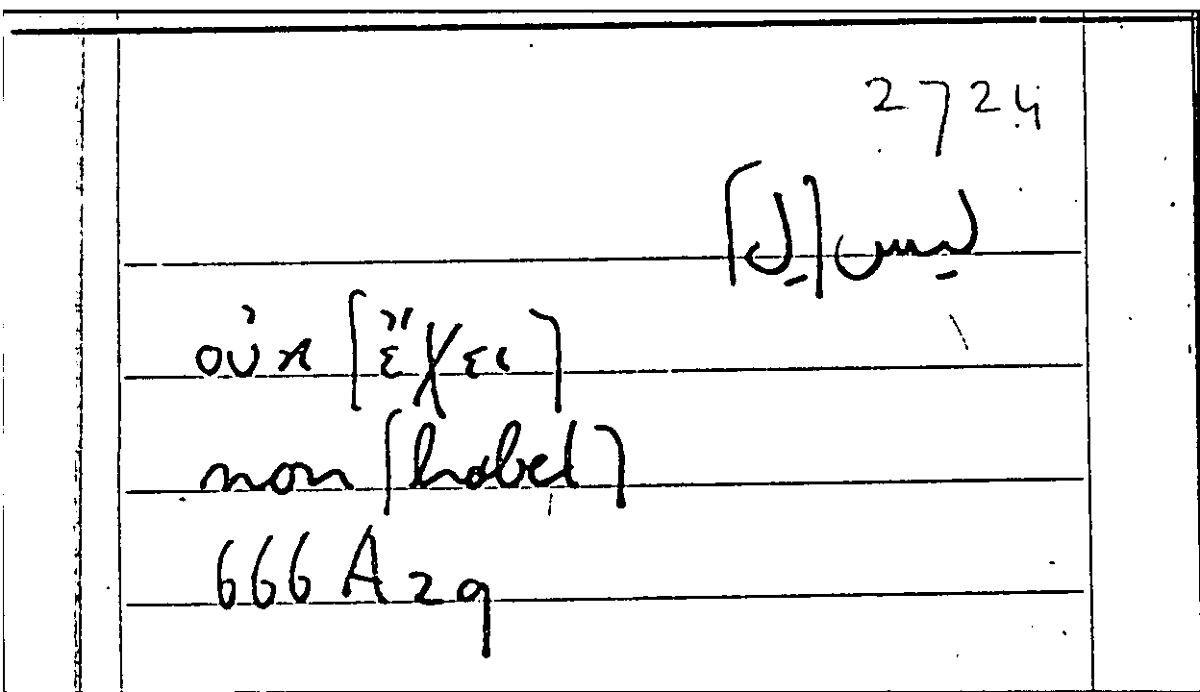 2724
ليس [لِ]
οὐκ [ἔχει]
non [habet]
666 A 29